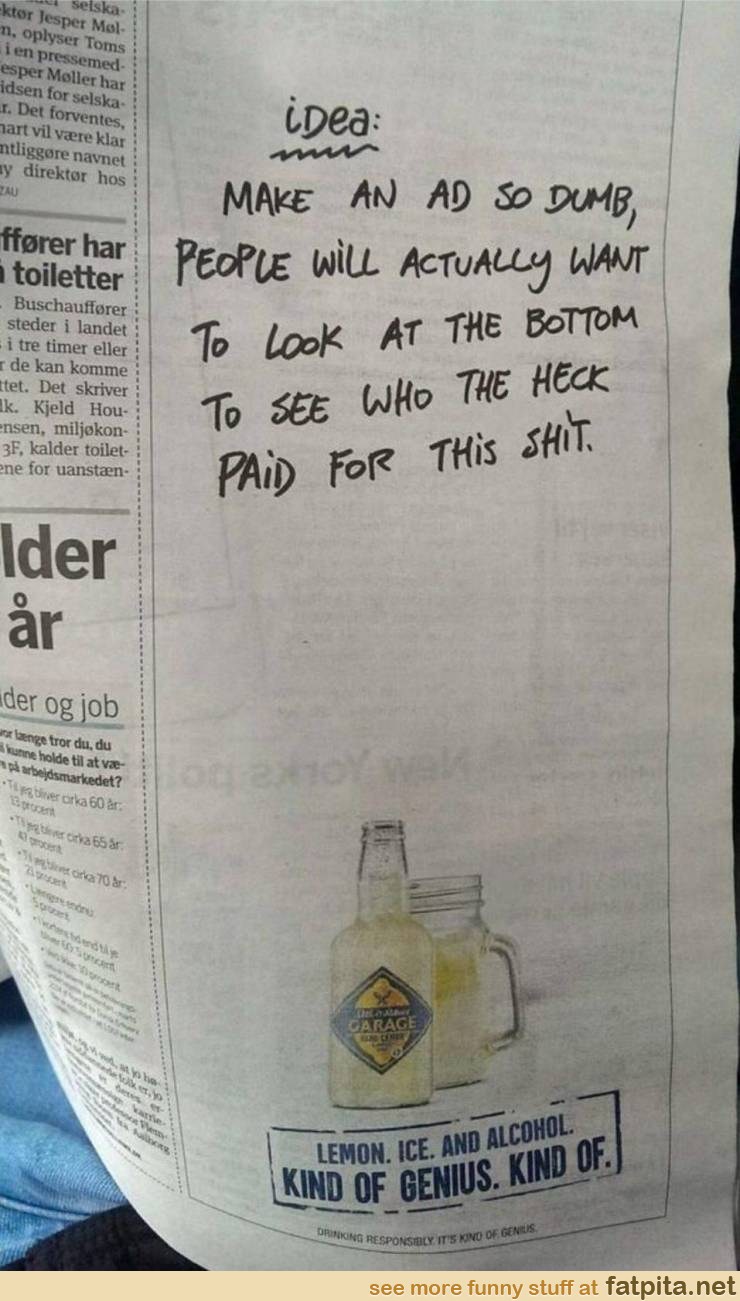 selska-
ktør Jesper Møl-
n, oplyser Toms
i en pressemed-
esper Møller har
idsen for selska-
r. Det forventes,
nart vil være klar
ntliggøre navnet
ny direktør hos
ZAU
ffører har
toiletter
Buschauffører
steder i landet
i tre timer eller
r de kan komme
ttet. Det skriver
lk. Kjeld Hou-
ensen, miljøkon-
3F, kalder toilet-
ene for uanstæn-
lder
år
lder og job
vor længe tror du, du
kunne holde til at væ-
på arbejdsmarkedet?
• Til jeg bliver cirka 60 år:
13 procent
• Til jeg bliver cirka 65 år:
47 procent
• Til jeg bliver cirka 70 år:
21 procent
• Længere endnu:
5 procent
idea:
MAKE AN AD SO DUMB,
PEOPLE WILL ACTUALLY WANT
TO LOOK AT THE BOTTOM
TO SEE WHO THE HECK
PAID FOR THIS SHIT.
GARAGE
HARD LEMON
LEMON. ICE. AND ALCOHOL.
KIND OF GENIUS. KIND OF.
DRINKING RESPONSIBLY. IT'S KIND OF GENIUS.
see more funny stuff at fatpita.net